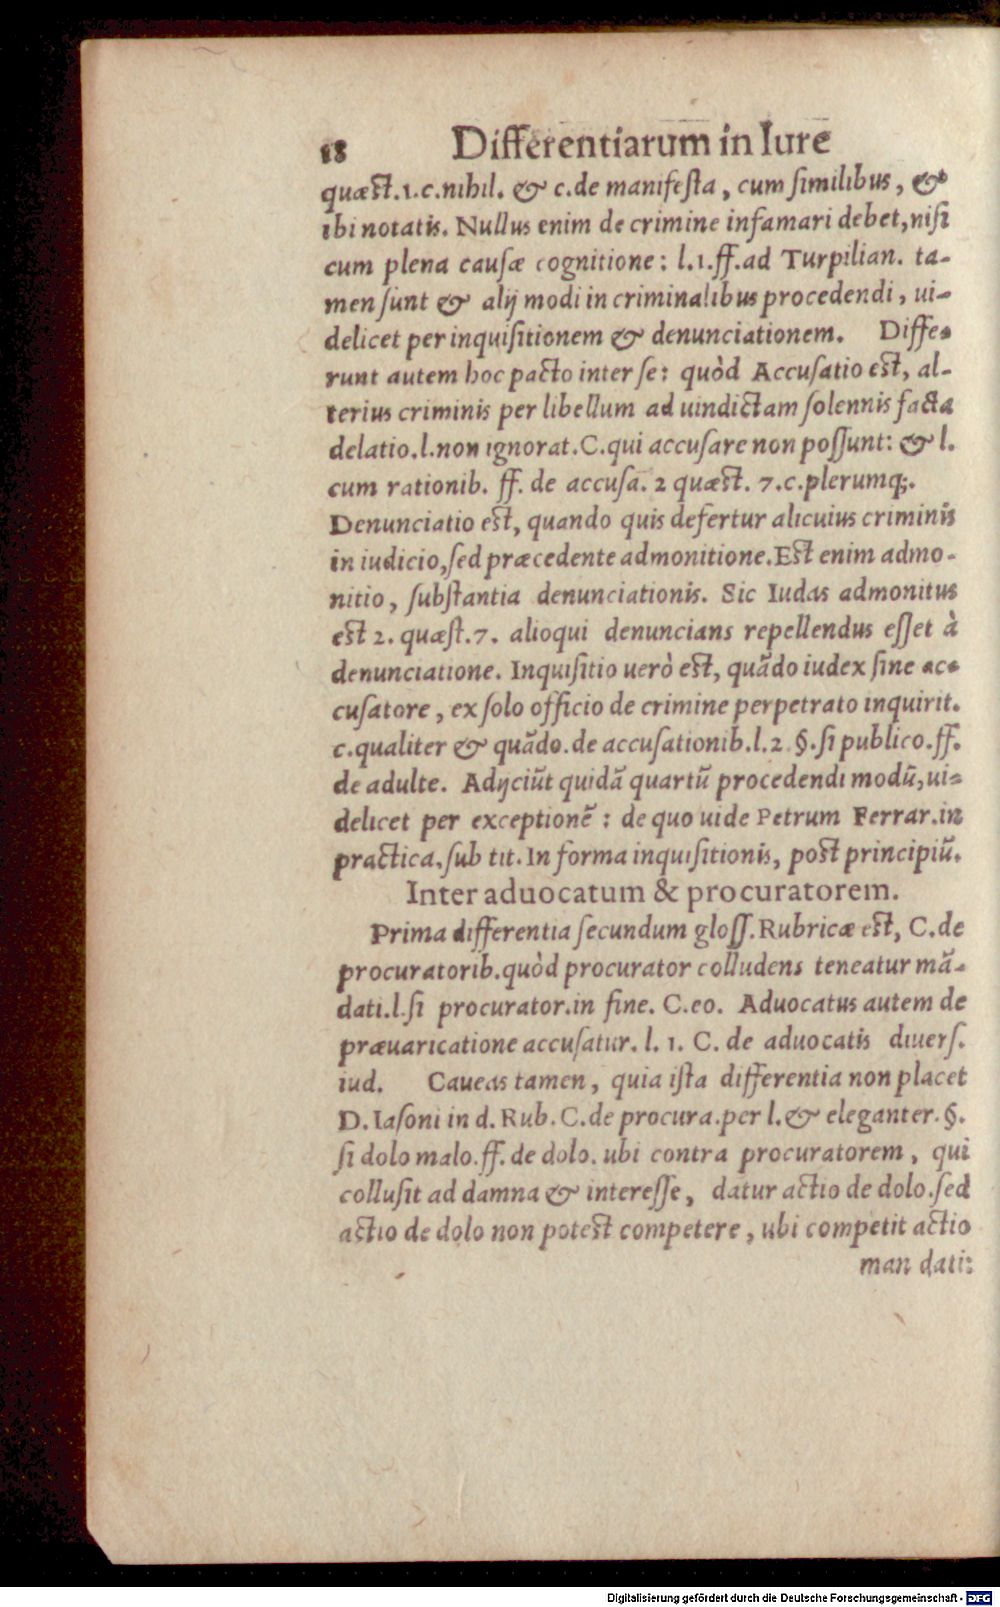 18 Differentiarum in Iure
quæst.1.c.nihil. & c.de manifesta, cum similibus, &
ibi notatis. Nullus enim de crimine infamari debet,nisi
cum plena causæ cognitione: l.1.ff.ad Turpilian. ta-
men sunt & alij modi in criminalibus procedendi, ui-
delicet per inquisitionem & denunciationem. Diffe-
runt autem hoc pacto inter se: quòd Accusatio est, al-
terius criminis per libellum ad uindictam solennis facta
delatio.l.non ignorat.C.qui accusare non possunt: & l.
cum rationib. ff. de accusa. 2 quæst. 7.c.plerumq;.
Denunciatio est, quando quis defertur alicuius criminis
in iudicio,sed præcedente admonitione.Est enim admo-
nitio, substantia denunciationis. Sic Iudas admonitus
est 2. quæst.7. alioqui denuncians repellendus esset à
denunciatione. Inquisitio uerò est, quādo iudex sine ac-
cusatore, ex solo officio de crimine perpetrato inquirit.
c.qualiter & quādo.de accusationib.l.2 §.si publico.ff.
de adulte. Adijciūt quidā quartū procedendi modū,ui-
delicet per exceptionē: de quo uide Petrum Ferrar.in
practica.sub tit. In forma inquisitionis, post principiū.
Inter aduocatum & procuratorem.
Prima differentia secundum gloss.Rubricæ est, C.de
procuratorib.quòd procurator colludens teneatur mā-
dati.l.si procurator.in fine. C.eo. Aduocatus autem de
præuaricatione accusatur. l. 1. C. de aduocatis diuers.
iud. Caueas tamen, quia ista differentia non placet
D. Iasoni in d. Rub. C.de procura.per l.& eleganter.§.
si dolo malo.ff. de dolo. ubi contra procuratorem, qui
collusit ad damna & interesse, datur actio de dolo.sed
actio de dolo non potest competere, ubi competit actio
man dati:
Digitalisierung gefördert durch die Deutsche Forschungsgemeinschaft - DFG